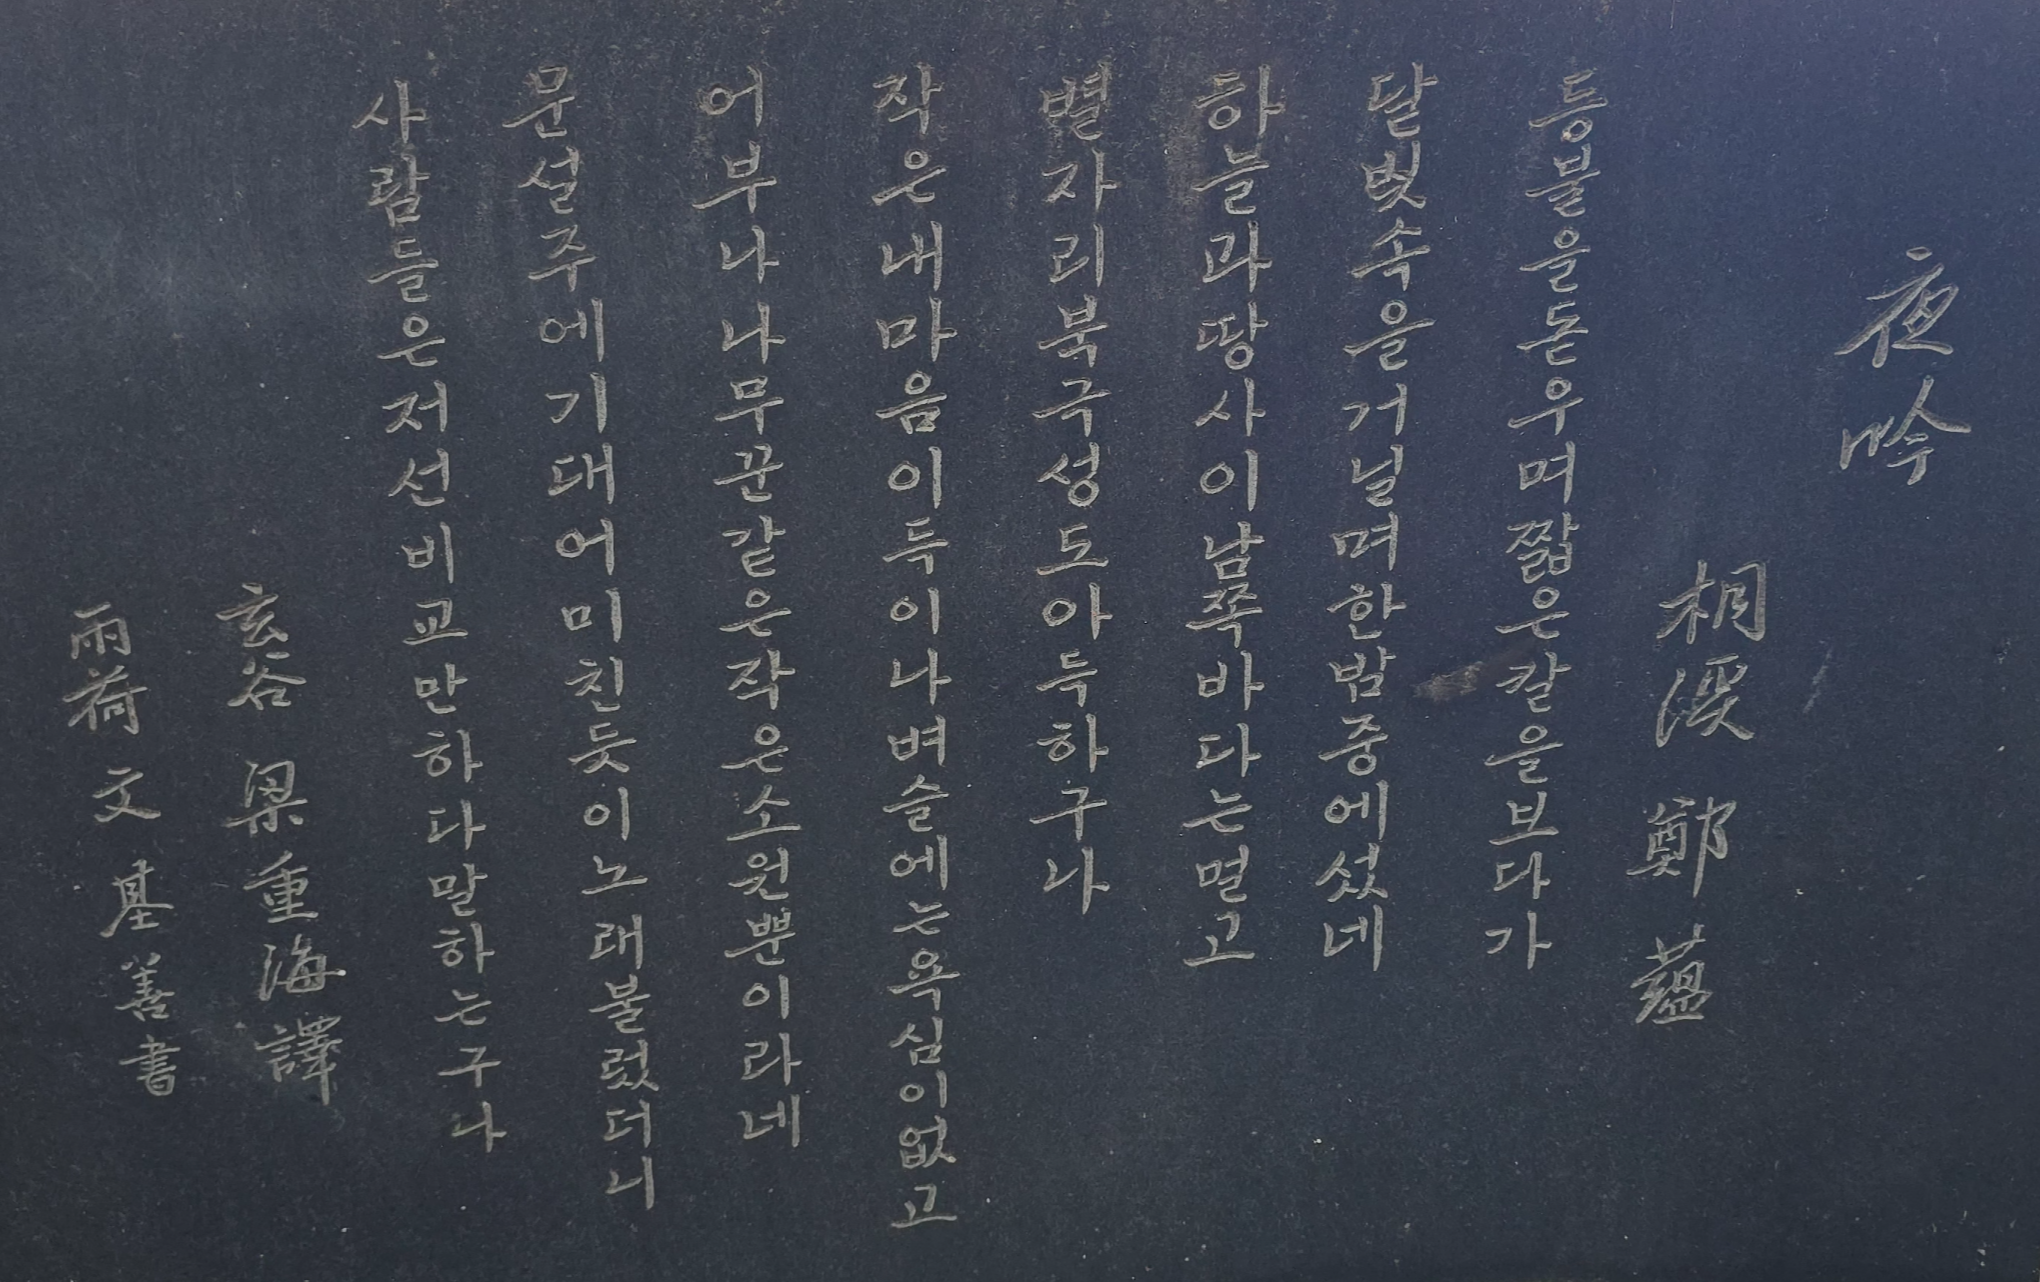 夜吟
桐溪 鄭蘊
등불을돋우며짧은칼을보다가
달빛속을거닐며한밤중에섰네
하늘과땅사이남쪽바다는멀고
별자리북극성도아득하구나
작은내마음이득이나벼슬에는욕심이없고
어부나나무꾼같은작은소원뿐이라네
문설주에기대어미친듯이노래불렀더니
사람들은저선비교만하다말하는구나
玄谷 梁重海譯
雨荷 文基善書